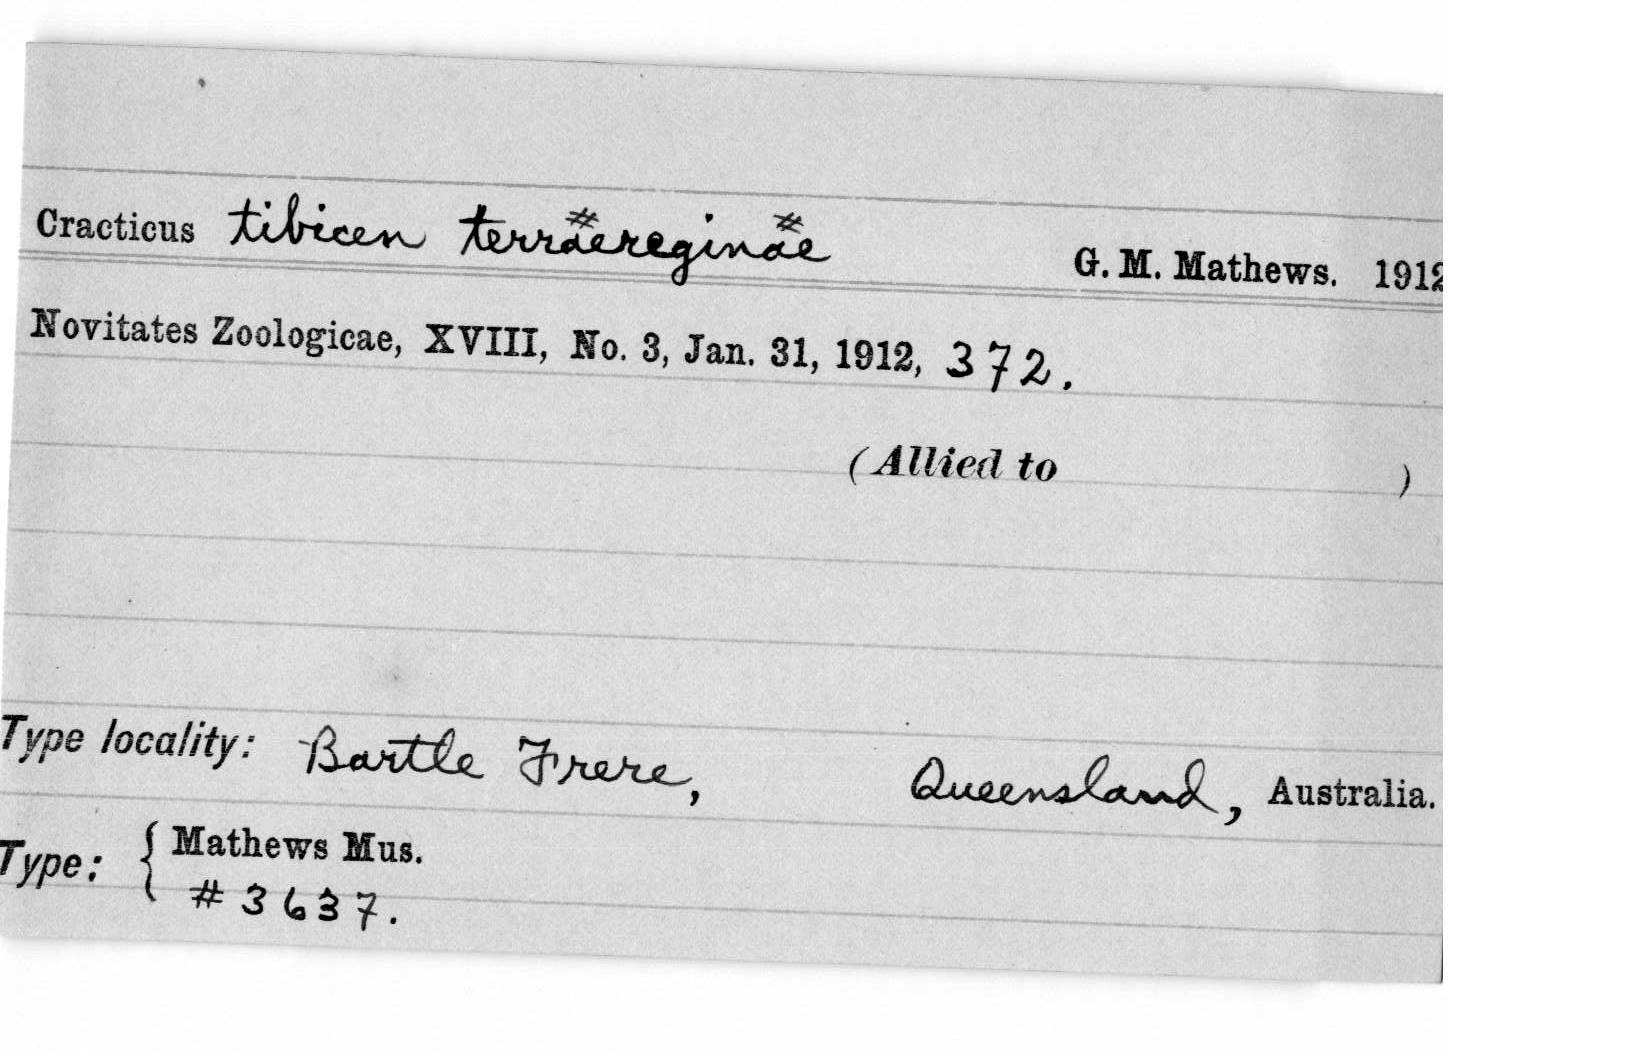 Cracticus tibicen terraereginae G. M. Mathews. 1912
Novitates Zoologicae, XVIII, No. 3, Jan. 31, 1912, 372.
(Allied to )
Type locality: Bartle Frere, Queensland, Australia.
Type: { Mathews Mus.
# 3637.